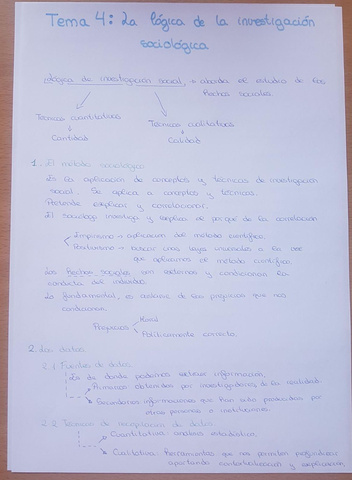 Tema 4: La lógica de la investigación
sociológica
Lógica de investigación social, → aborda el estudio de los
hechos sociales.
Técnicas cuantitativas
Técnicas cualitativas
↳ Cantidad
↳ Calidad
1. El método sociológico
Es la aplicación de conceptos y técnicas de investigación
social. Se aplica a conceptos y técnicas.
Pretende explicar y correlacionar.
El sociólogo investiga y explica el por qué de la correlación
Empirismo → aplicación del método científico.
Positivismo → buscar unas leyes universales a las que
que aplicamos el método científico.
Los hechos sociales son externos y condicionan la
conducta del individuo.
Lo fundamental, es de los prejuicios que nos
condicionan.
Prejuicios
Moral
Políticamente correcto.
2. Los datos
2.1. Fuentes de datos
Es de donde podemos extraer información.
Primarios obtenidos por investigadores de la realidad.
Secundarios informaciones que han sido producidas por
otras personas o instituciones.
2.2. Técnicas de recopilación de datos
Cuantitativa: análisis estadístico.
Cualitativa: herramientas que nos permiten profundizar
aportando contextualización y explicación.